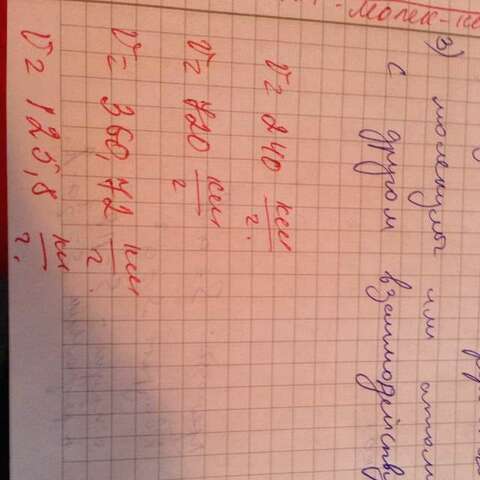 3) молекулы или атом
с другом взаимодейству
V = 240 км/г.
V = 720 км/г
V = 360,72 км/г.
V = 125,8 км/г.